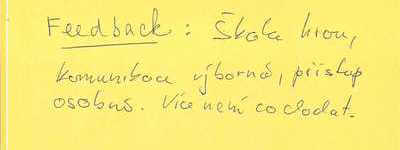 Feedback: Škola hrou,
komunikace výborná, přístup
osobní. Více není co dodat.